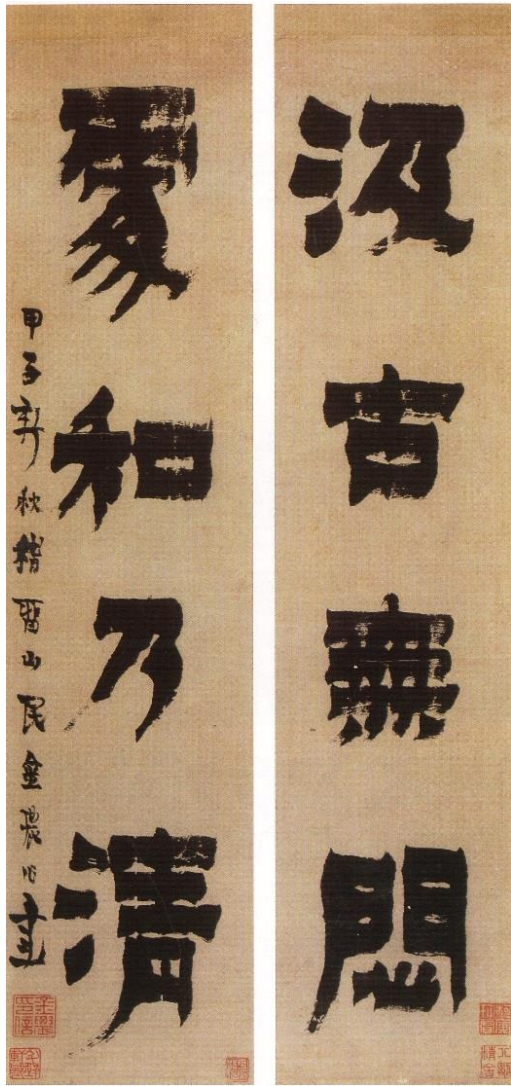 汲古無悶
處和乃清
甲子新秋稽留山民金農書